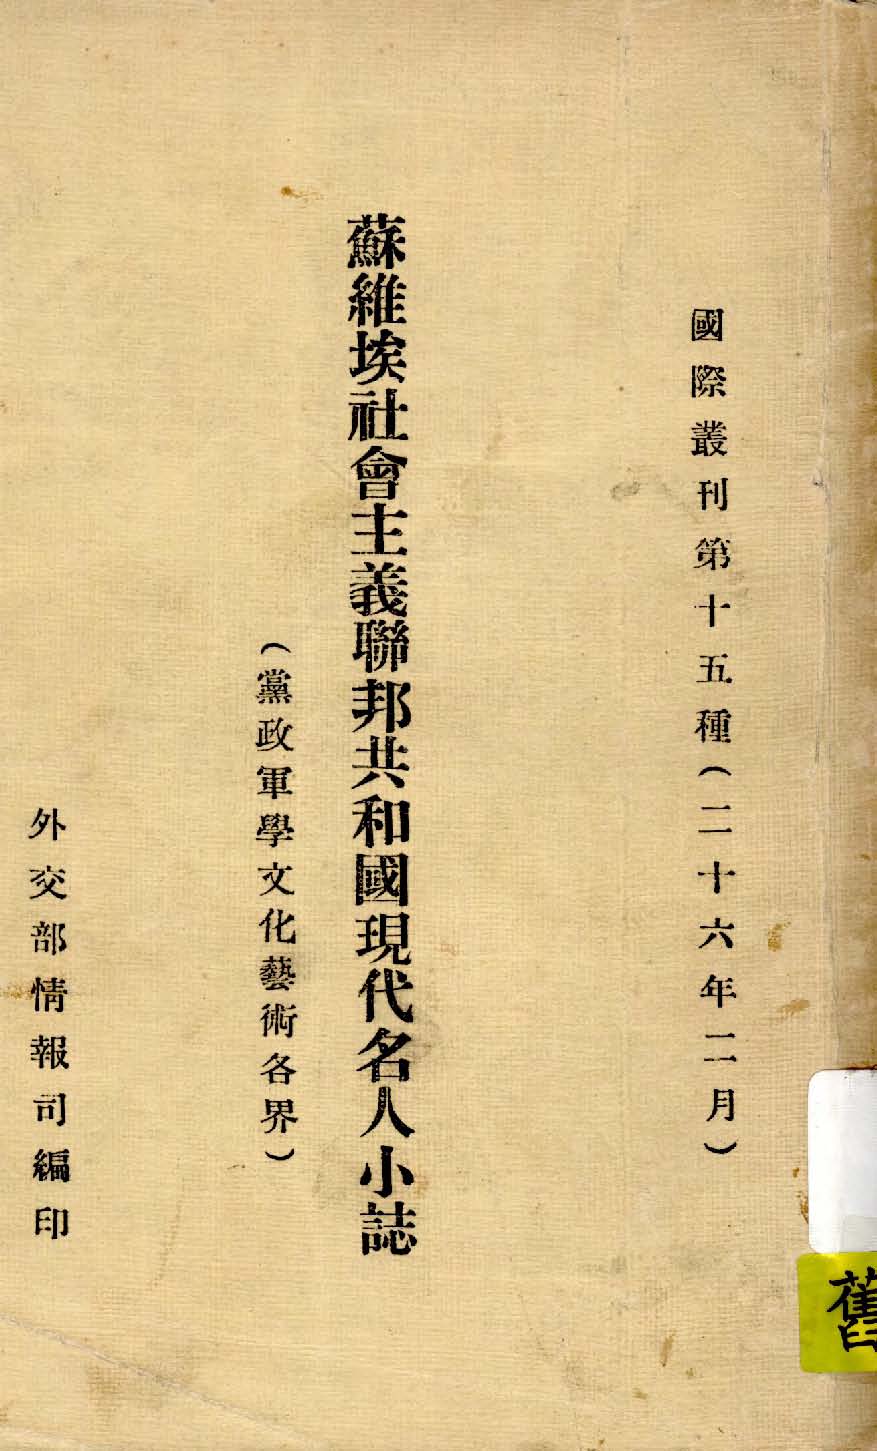 國際叢刊第十五種(二十六年二月)
蘇維埃社會主義聯邦共和國現代名人小誌
(黨政軍學文化藝術各界)
外交部情報司編印
舊